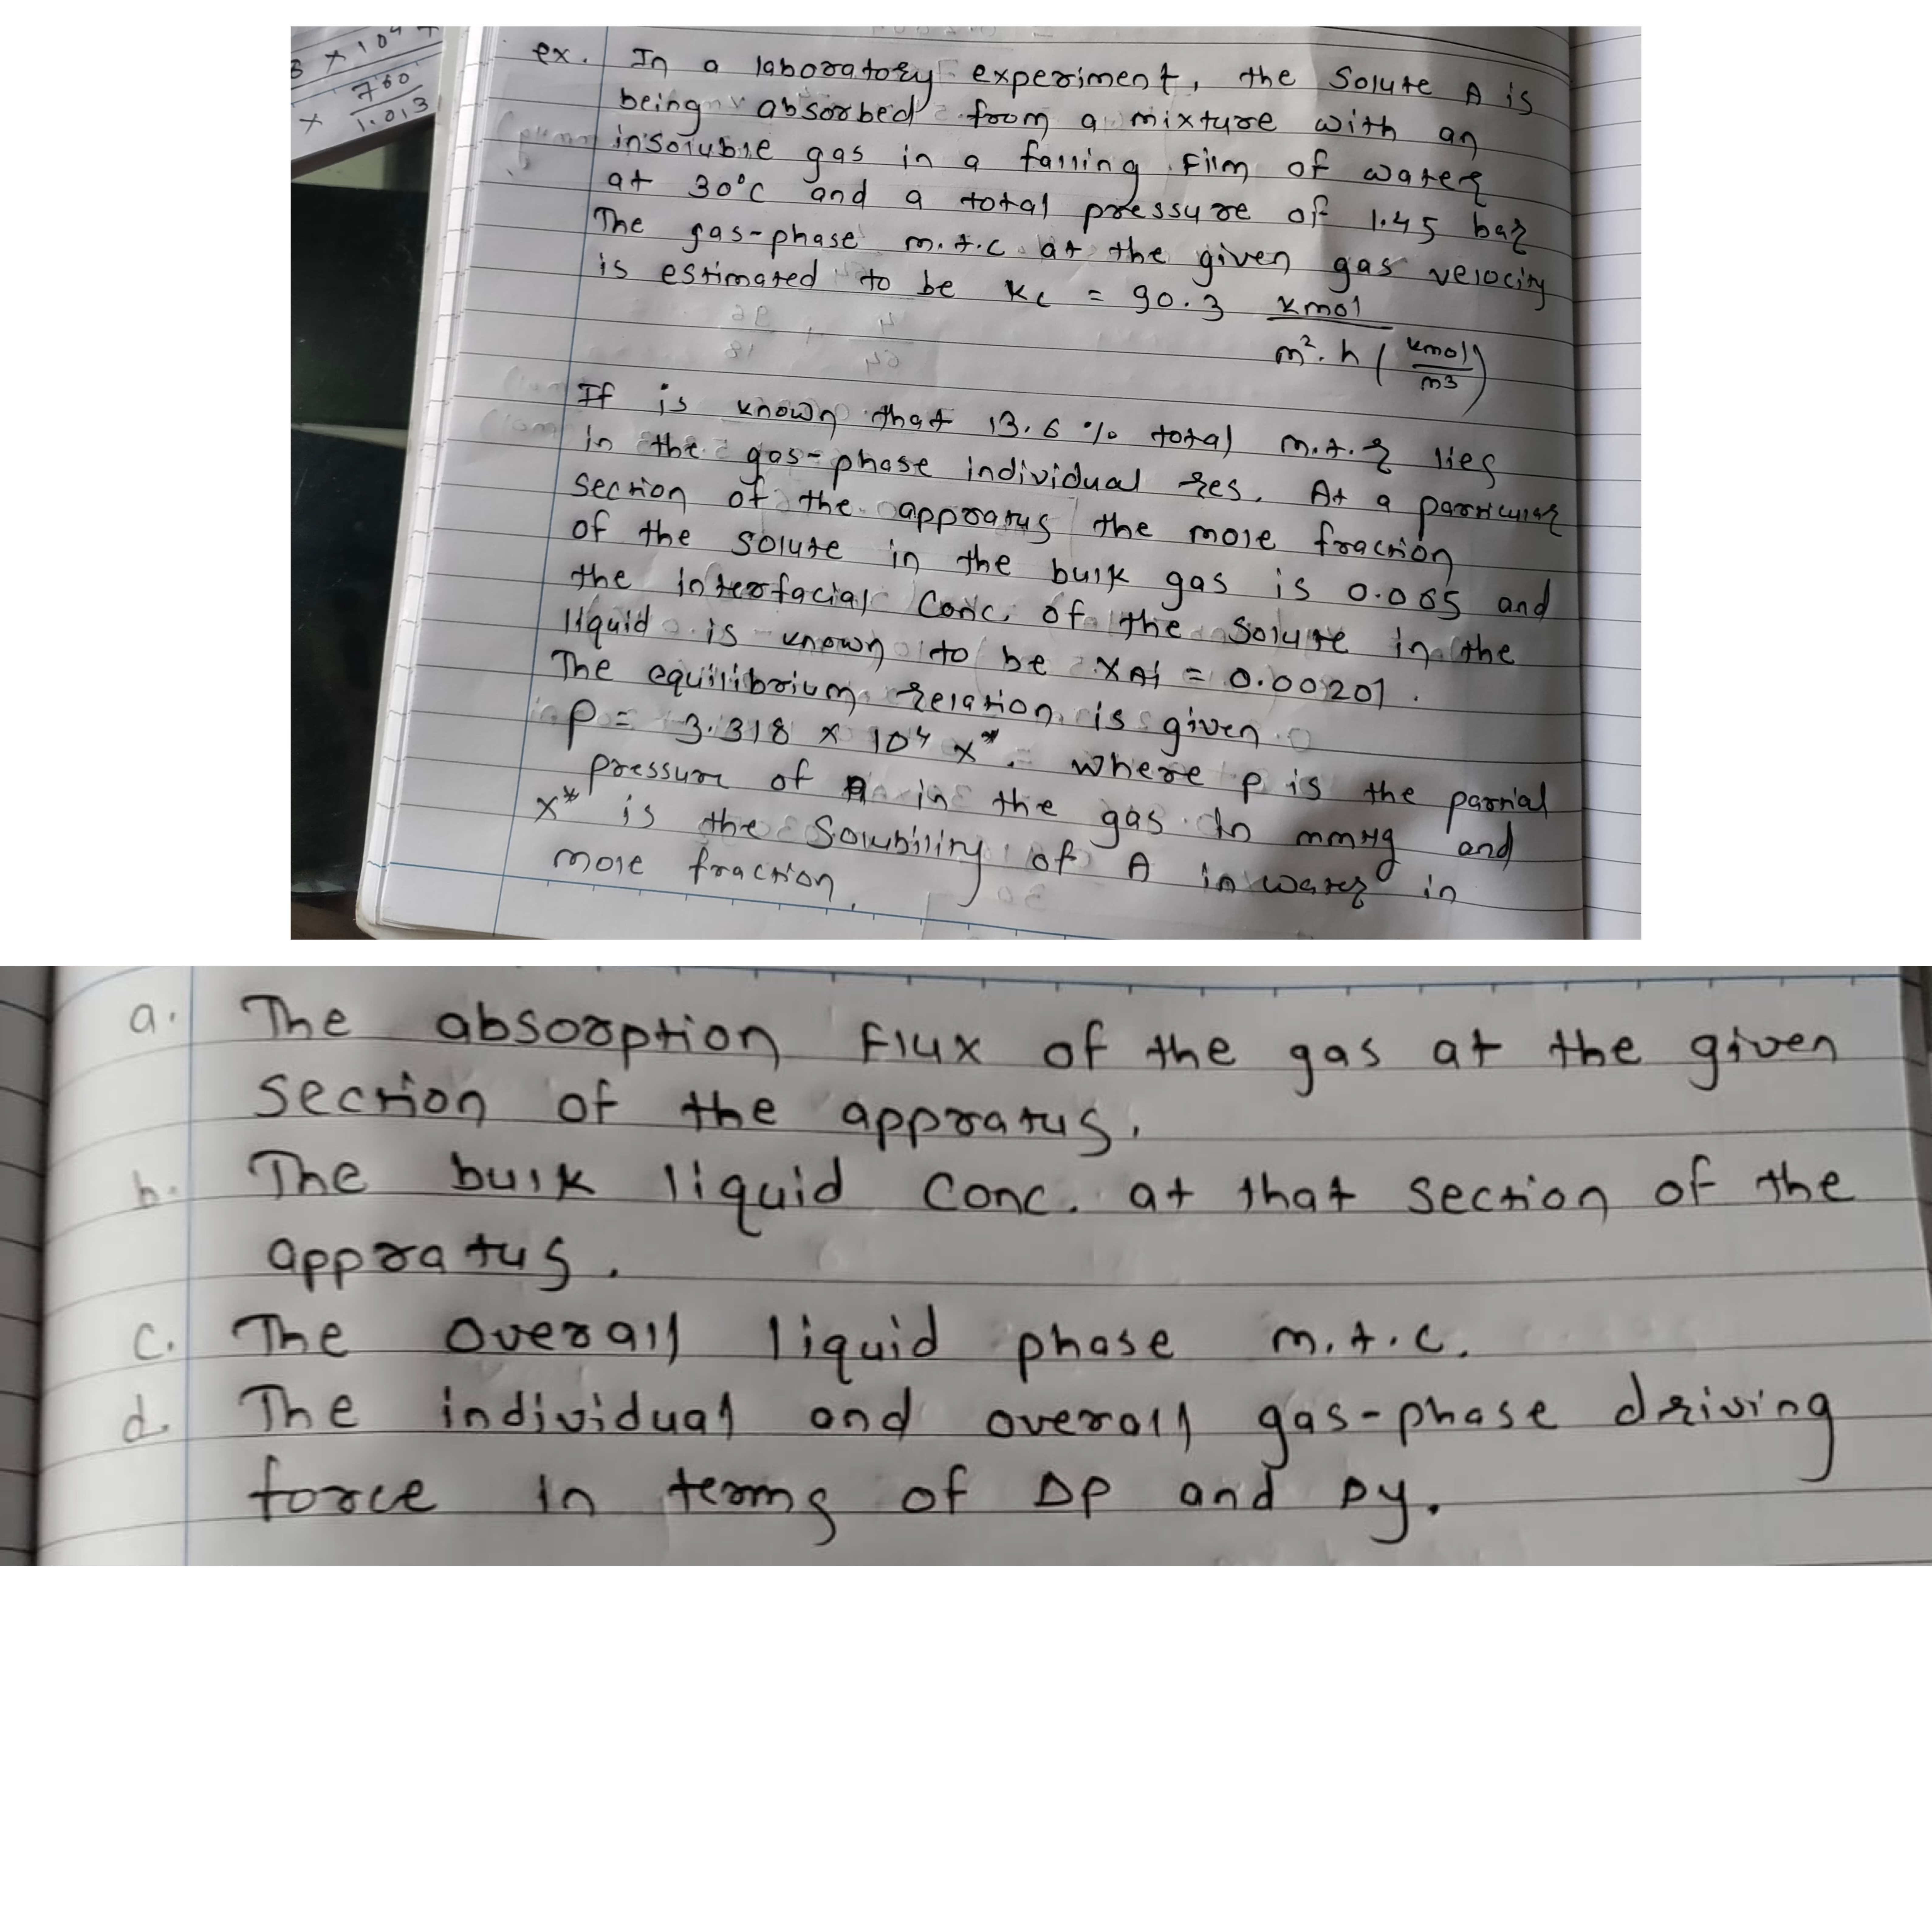 3 × 10⁴
× 760 / 1.013
ex. In a laboratory experiment, the solute A is
being absorbed from a mixture with an
insoluble gas in a falling film of water
at 30°C and a total pressure of 1.45 bar
The gas-phase m.t.c. at the given gas velocity
is estimated to be kc = 90.3 kmol / m². h (kmol/m3)
If is known that 13.6 % total m.t.r lies
in the gas-phase individual res. At a particular
section of the appratus the mole fraction
of the solute in the bulk gas is 0.065 and
the interfacial conc. of the solute in the
liquid is known to be xAi = 0.00201.
The equilibrium relation is given
p = 3.318 × 10⁴ x*. where p is the partial
pressure of A in the gas in mmHg and
x* is the solubility of A in water in
mole fraction.
a. The absorption flux of the gas at the given
section of the appratus.
b. The bulk liquid conc. at that section of the
appratus.
c. The overall liquid phase m.t.c.
d. The individual and overall gas-phase driving
force in terms of ΔP and Δy.